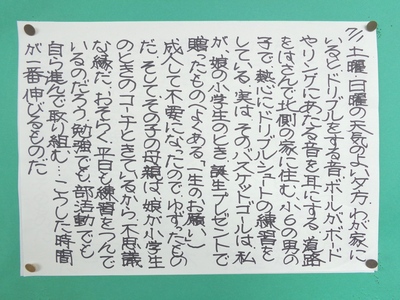 11/1 土曜日曜の天気のよい夕方、わが家に
いるとドリブルをする音、ボールがボード
やリングにあたる音を耳にする。道路
をはさんで北側の家に住む、小6の男の
子で、熱心にドリブルシュートの練習を
している。実は、そのバスケットゴールは、私
が、娘の小学生のとき、誕生プレゼントで
贈ったもの(よくある、「一生のお願い」)
成人して不要になったので、ゆずったもの
だ。そしてその子の母親は、娘が小学生
のときのコーチときているから、不思議
な縁だ。おそらく、平日も練習をつんで
いるのだろう。勉強でも、部活動でも
自ら進んで取り組む…こうした時間
が一番伸びるものだ